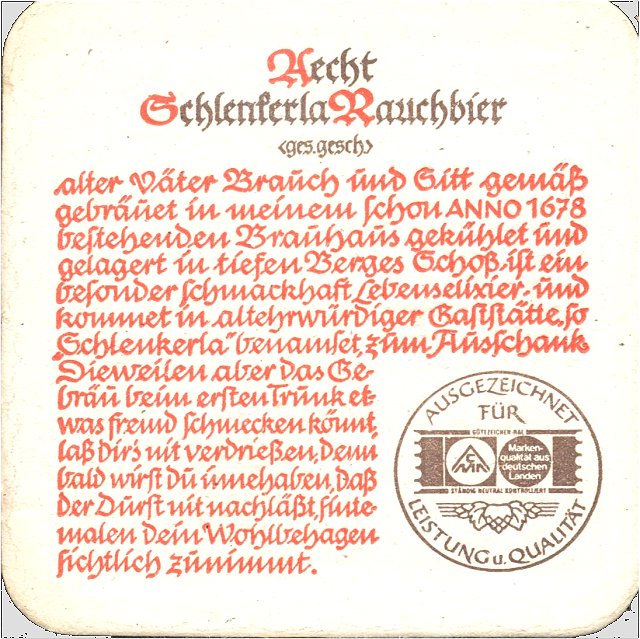 Aecht
Schlenkerla Rauchbier
<ges.gesch>
alter Väter Brauch und Sitt gemäß
gebräuet in meinem schon ANNO 1678
bestehenden Brauhaus gekühlet und
gelagert in tiefen Berges Schoß, ist ein
besonder schmackhaft Lebenselixier und
kommet in altehrwürdiger Gaststätte, so
„Schlenkerla" benamset, zum Ausschank
Dieweilen aber das Ge-
bräu beim ersten Trunk et-
was fremd schmecken könnt,
laß Dir's nit verdrießen, denn
bald wirst Du innehaben, Daß
der Durst nit nachläßt, sinte-
malen dein Wohlbehagen
sichtlich zunimmt.
AUSGEZEICHNET
FÜR
GÜTEZEICHEN RAL
CMA
Marken-
qualität aus
deutschen
Landen
STÄNDIG NEUTRAL KONTROLLIERT
LEISTUNG u. QUALITÄT